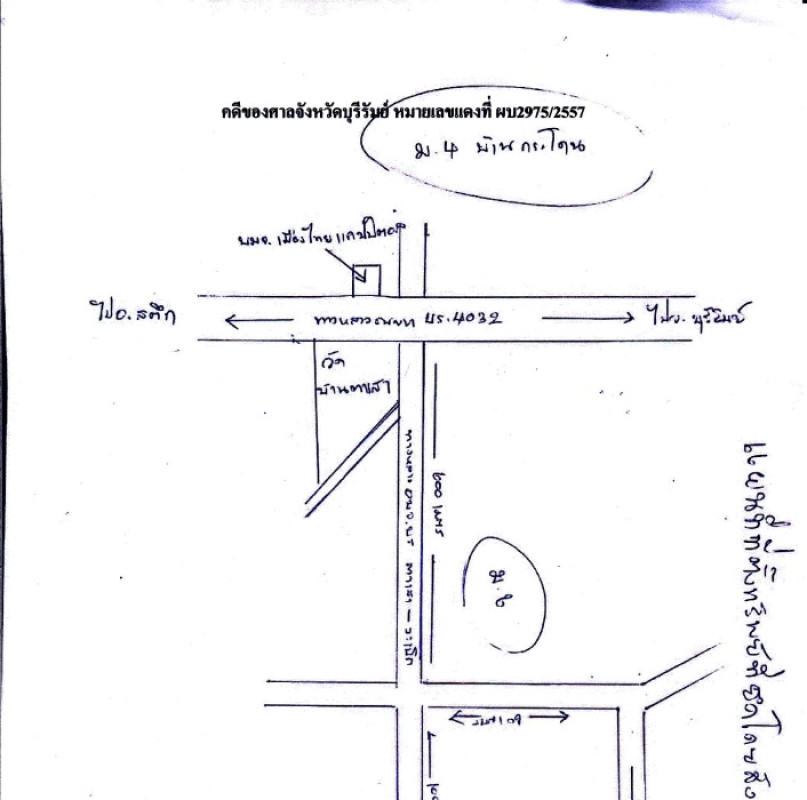 คดีของศาลจังหวัดบุรีรัมย์ หมายเลขแดงที่ ผบ2975/2557
ม.4 บ้านกระโดน
บมจ. เมืองไทย แคปปิตอล
ไป อ.สตึก
ทางหลวงชนบท บร.4032
ไป จ.บุรีรัมย์
วัด
บ้านตาเสา
600 เมตร
ม.6
แผนที่ที่ตั้งทรัพย์ที่ยึดโดยสัง